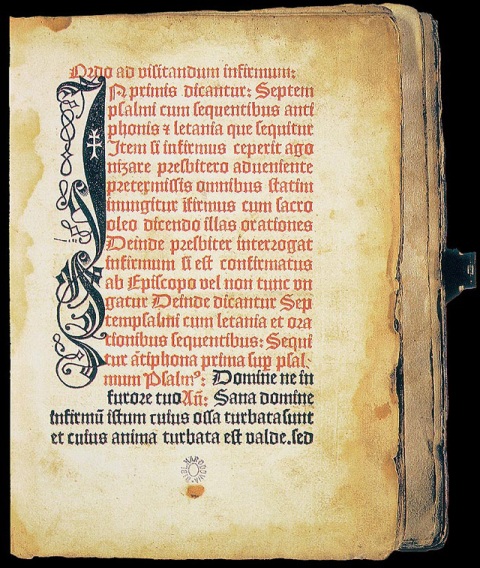 Ordo ad visitandum infirmum:
IN primis dicantur: Septem
psalmi cum sequentibus anti
phonis ⁊ letania que sequitur
Item si infirmus ceperit ago
nizare presbitero adueniente
pretermissis omnibus statim
inungitur īfirmus cum sacro
oleo dicendo illas orationes
Deinde presbiter interrogat
infirmum si est confirmatus
ab Episcopo vel non tunc vn
gatur Deinde dicantur Sep
tempsalmi cum letania et ora
tionibus sequentibus: Sequi
tur āthiphona prima sup psal⸗
mum Psalmᵒ: Domine ne in
furore tuo Añ: Sana domine
infirmū istum cuius ossa turbata sunt
et cuius anima turbata est valde. sed